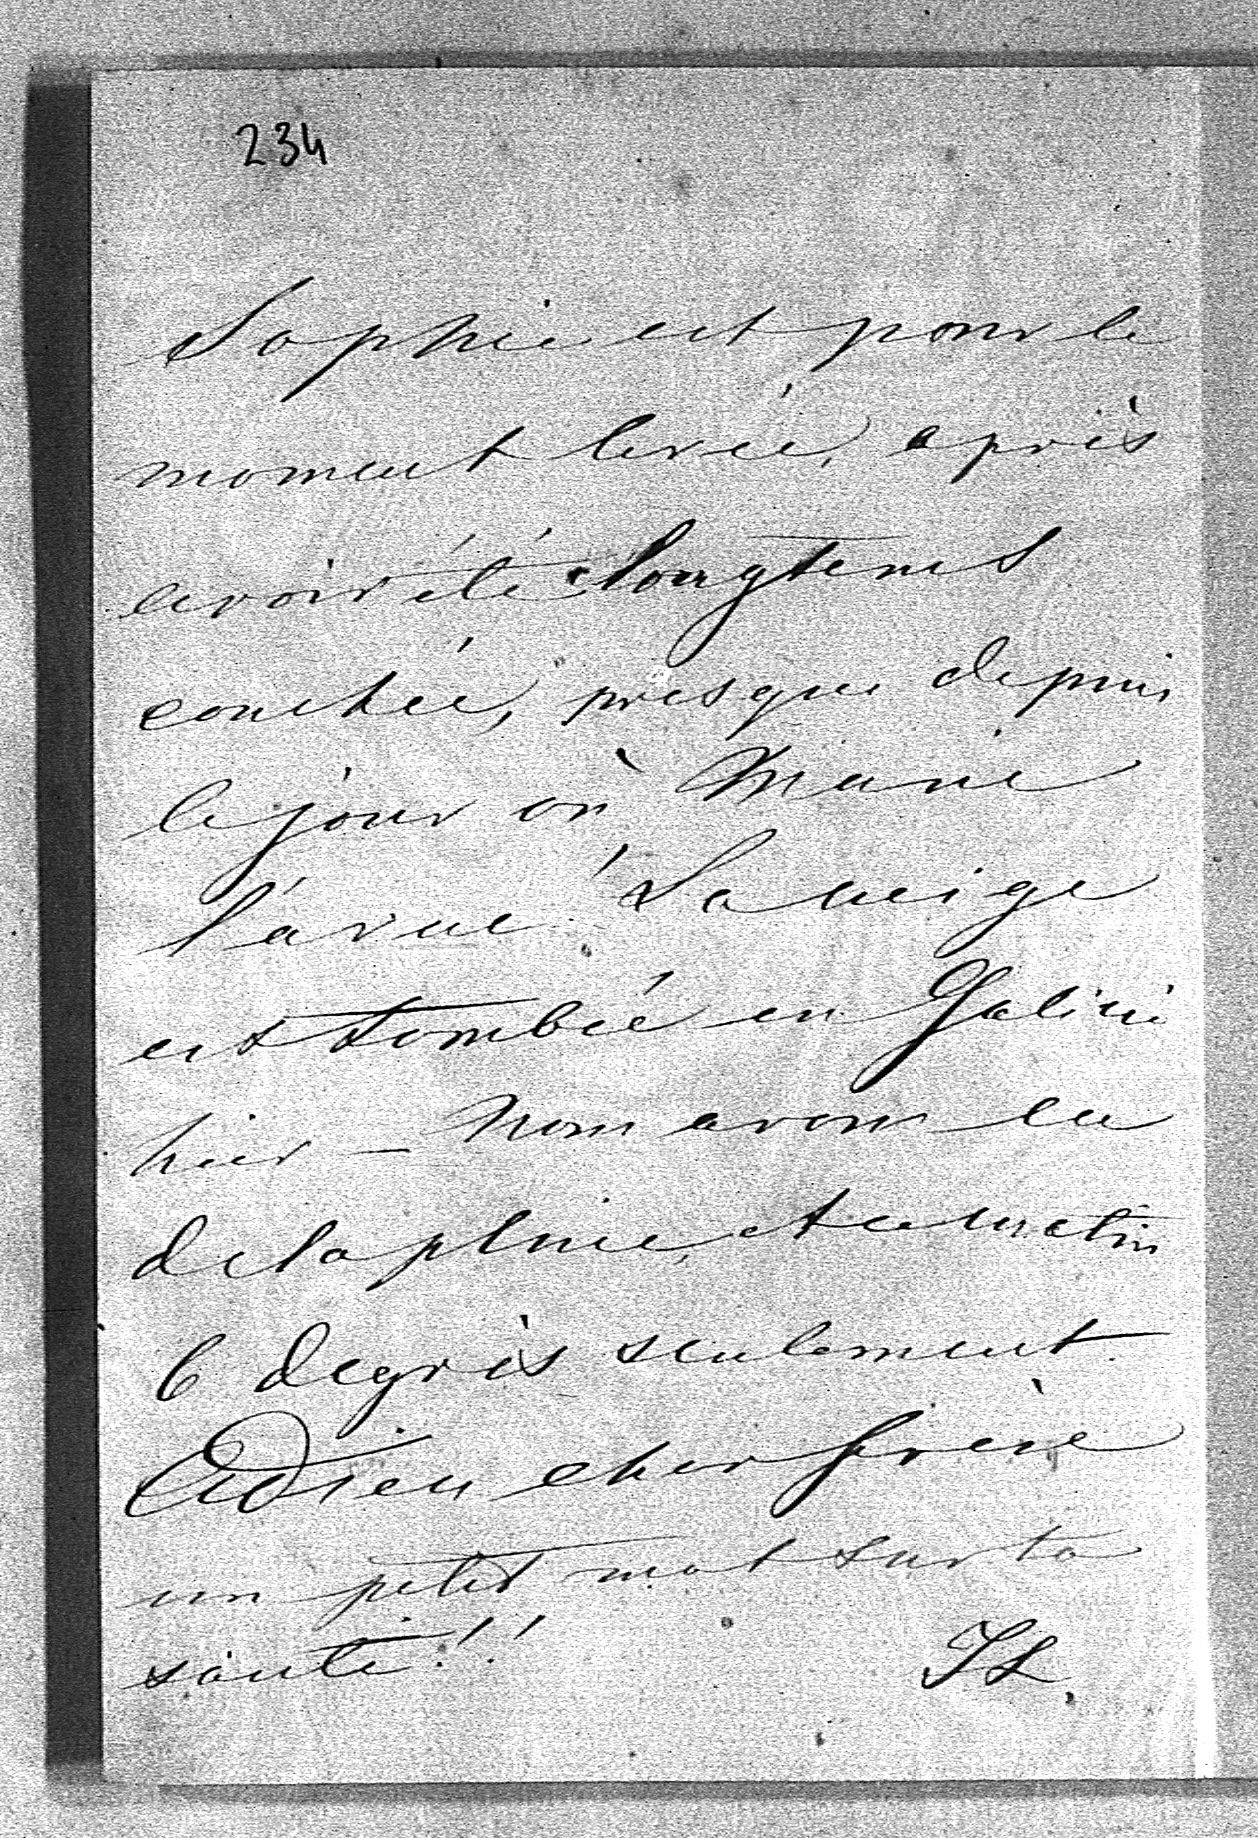 234
Sophie est pour le
moment levée, après
avoir été longtems
couchée, presque depuis
le jour où Marie
l'a vue. La neige
est tombée en Galicie
hier – Nous avons eu
de la pluie, et ce matin
6 degrès seulement.
Adieu cher frère
un petit mot sur ta
santé!!